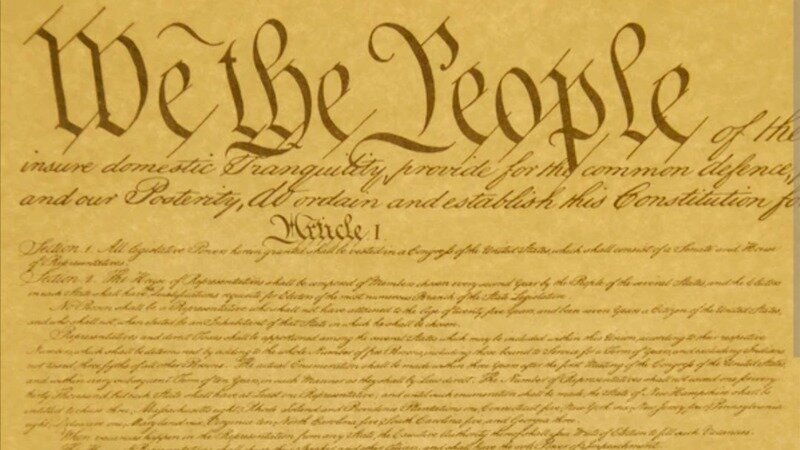 We the People of the
insure domestic Tranquility, provide for the common defence,
and our Posterity, do ordain and establish this Constitution fo
Article I
Section 1. All legislative Powers herein granted shall be vested in a Congress of the United States, which shall consist of a Senate and House
of Representatives.
Section 2. The House of Representatives shall be composed of Members chosen every second Year by the People of the several States, and the Electors
in each State shall have the Qualifications requisite for Electors of the most numerous Branch of the State Legislature.
No Person shall be a Representative who shall not have attained to the Age of twenty five Years, and been seven Years a Citizen of the United States,
and who shall not, when elected, be an Inhabitant of that State in which he shall be chosen.
Representatives and direct Taxes shall be apportioned among the several States which may be included within this Union, according to their respective
Numbers, which shall be determined by adding to the whole Number of free Persons, including those bound to Service for a Term of Years, and excluding Indians
not taxed, three fifths of all other Persons. The actual Enumeration shall be made within three Years after the first Meeting of the Congress of the United States,
and within every subsequent Term of ten Years, in such Manner as they shall by Law direct. The Number of Representatives shall not exceed one for every
thirty Thousand, but each State shall have at Least one Representative; and until such enumeration shall be made, the State of New Hampshire shall be
entitled to chuse three, Massachusetts eight, Rhode Island and Providence Plantations one, Connecticut five, New York six, New Jersey four, Pennsylvania
eight, Delaware one, Maryland six, Virginia ten, North Carolina five, South Carolina five, and Georgia three.
When vacancies happen in the Representation from any State, the Executive Authority thereof shall issue Writs of Election to fill such Vacancies.